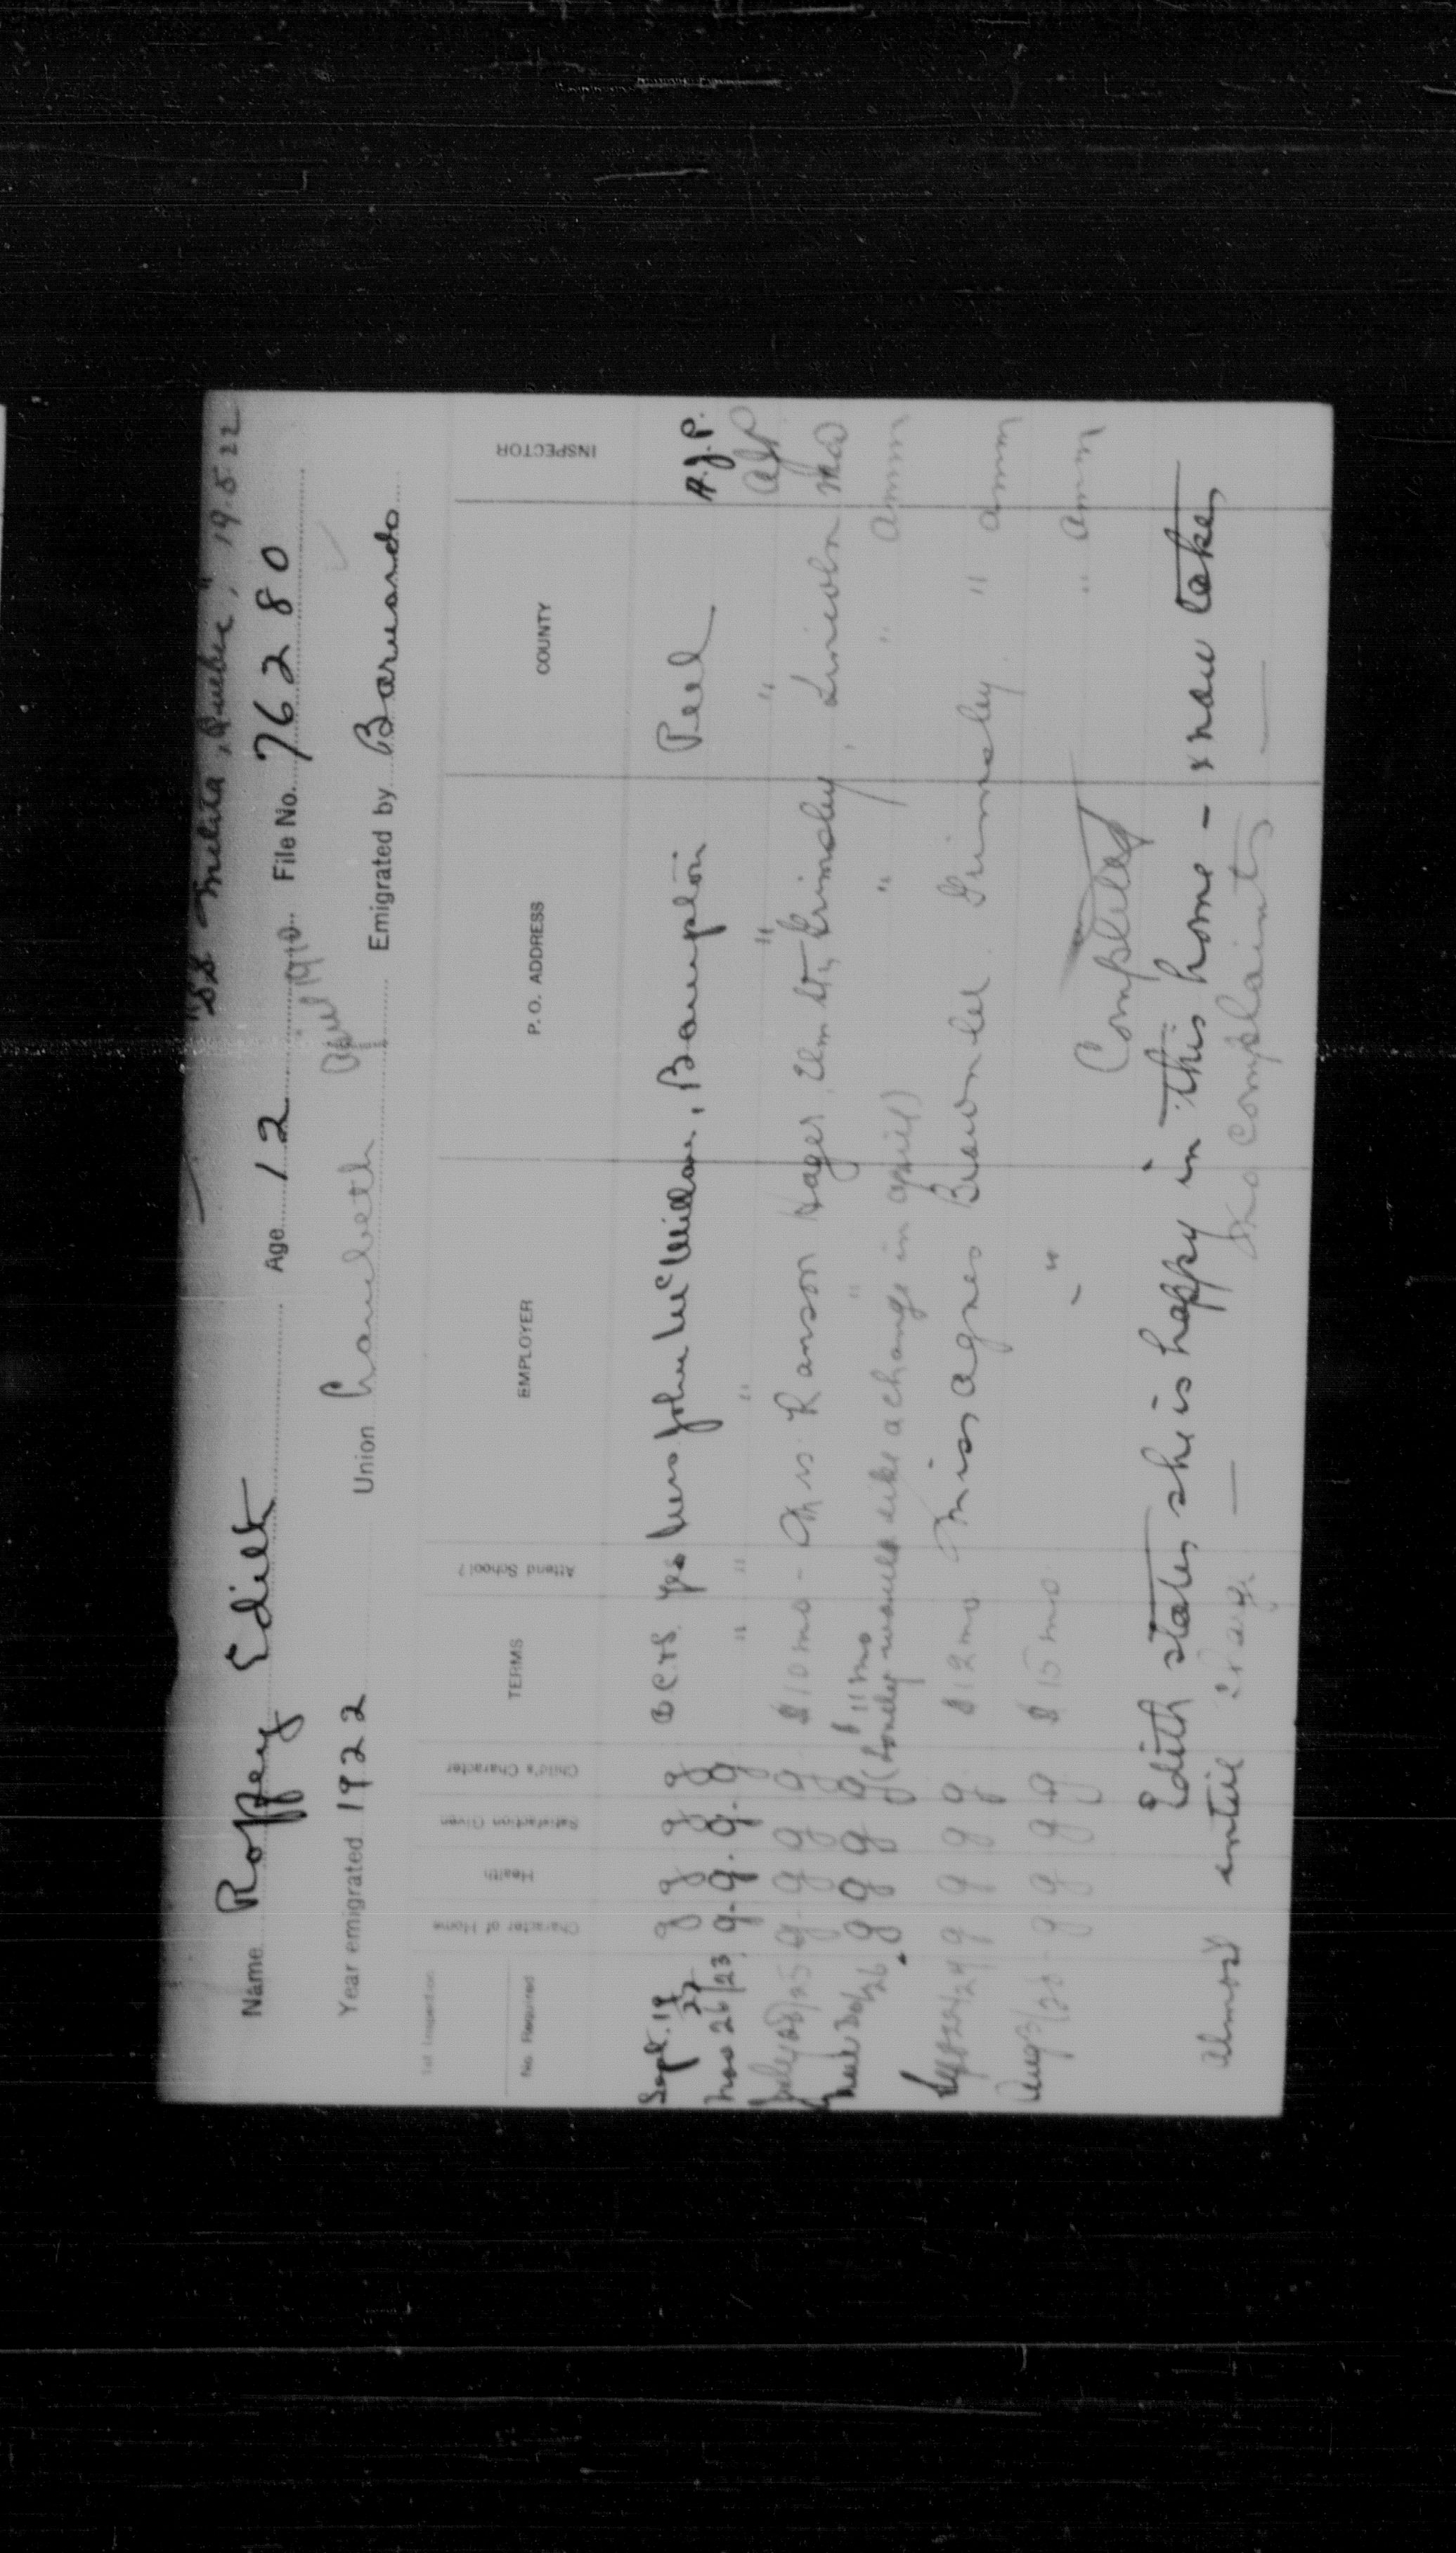 "SS Melita, Quebec," 19.5.22
Name Roffey Edith Age 12 File No. 76280
April 1910
Year emigrated 1922 Union Lambeth Emigrated by Barnardo
1st Inspection
No. Required Character of Home Health Satisfaction Given Child's Character TERMS Attend School? EMPLOYER P. O. ADDRESS COUNTY INSPECTOR
Sept. 19 g g g g B.C.&S. Yes Mrs John McMillan, Brampton Peel A.J.P.
Nov 26/23 g. g. g. g " " " " " AJP
July /25 g g g g $10 mo - Mrs Ranson Hager, Elm St, Grimsby, Lincoln
/26 g g g g $11 mo " " "
(Lonely would like a change in April)
/29 g g g g $12 mo Miss Agnes Brownlee Grimsby " amm
Aug 3/28 g g g g $15 mo - " " amm
Completed
Edith states she is happy in this home - & now takes
almost entire charge — No complaints —